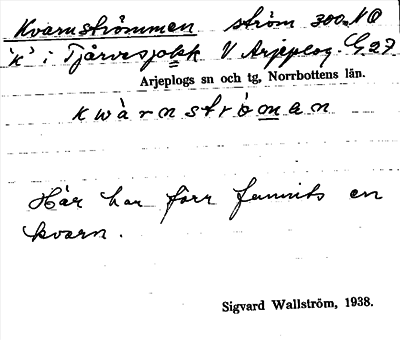 Kvarnströmmen ström 300 m NO
'K' i Tjårvesjokk V Arjeplog. G, 27
Arjeplogs sn och tg, Norrbottens län.
kwàrnstròman
Här har förr funnits en
kvarn.
Sigvard Wallström, 1938.